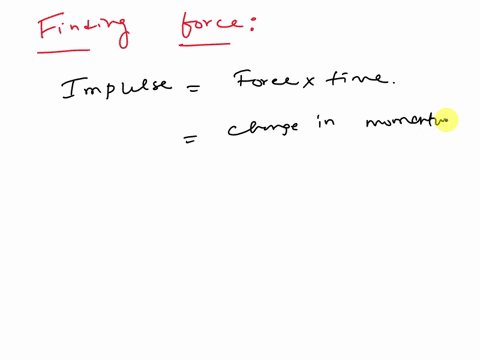 Finding force:
Impulse = Force x time.
= change in momentu